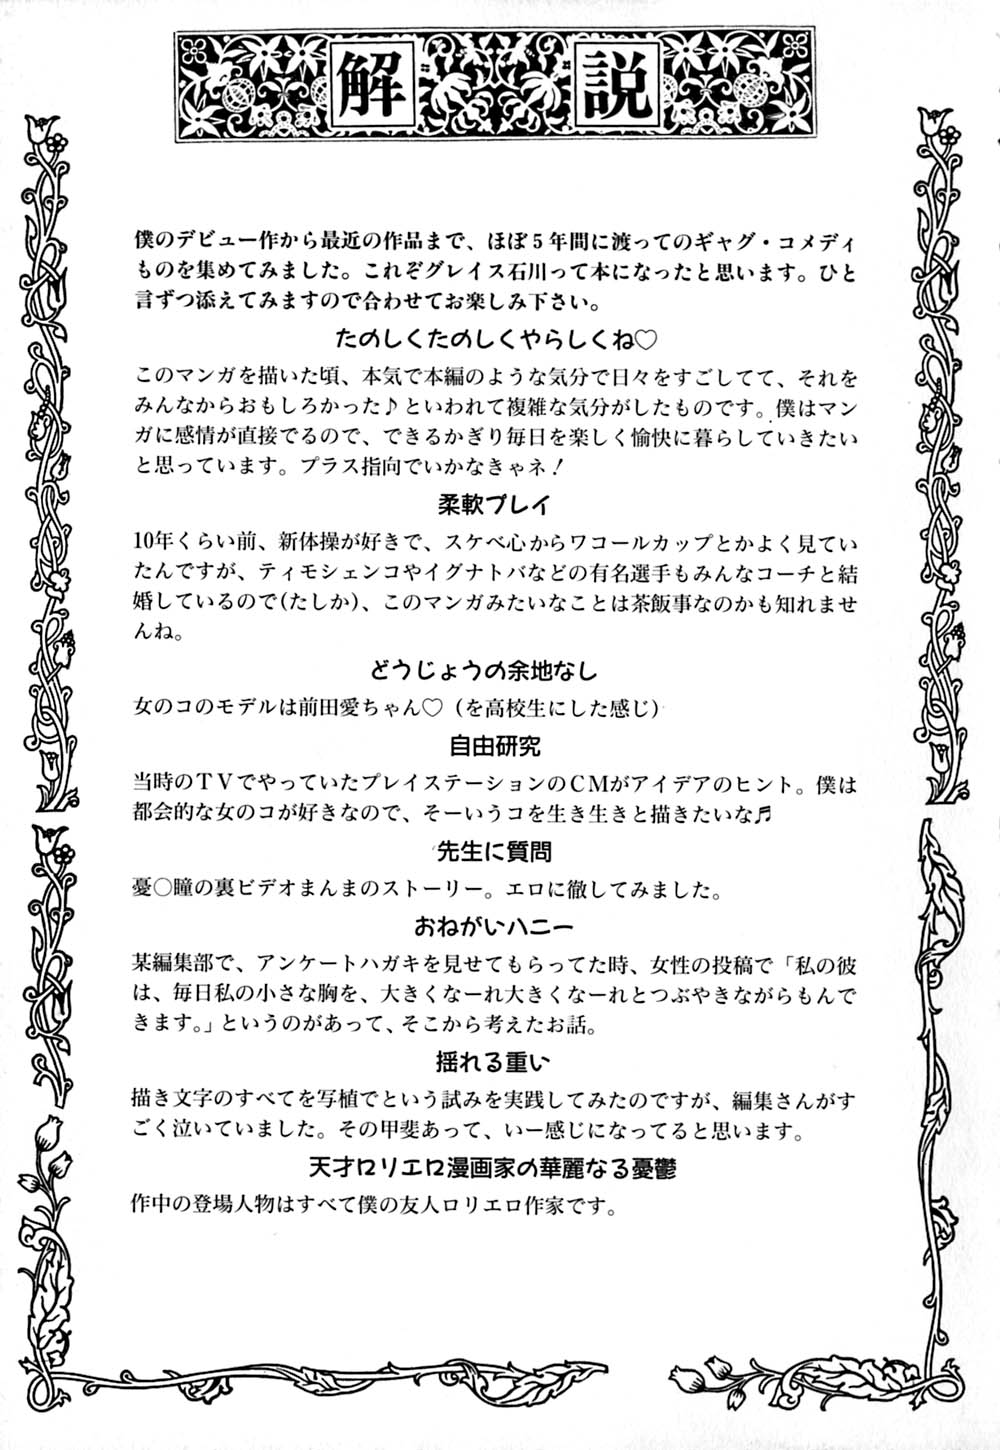 解説
僕のデビュー作から最近の作品まで、ほぼ5年間に渡ってのギャグ・コメディ
ものを集めてみました。これぞグレイス石川って本になったと思います。ひと
言ずつ添えてみますので合わせてお楽しみ下さい。
たのしくたのしくやらしくね♡
このマンガを描いた頃、本気で本編のような気分で日々をすごしてて、それを
みんなからおもしろかった♪といわれて複雑な気分がしたものです。僕はマン
ガに感情が直接でるので、できるかぎり毎日を楽しく愉快に暮らしていきたい
と思っています。プラス指向でいかなきゃネ！
柔軟プレイ
10年くらい前、新体操が好きで、スケベ心からワコールカップとかよく見てい
たんですが、ティモシェンコやイグナトバなどの有名選手もみんなコーチと結
婚しているので(たしか)、このマンガみたいなことは茶飯事なのかも知れませ
んね。
どうじょうの余地なし
女のコのモデルは前田愛ちゃん♡（を高校生にした感じ）
自由研究
当時のTVでやっていたプレイステーションのCMがアイデアのヒント。僕は
都会的な女のコが好きなので、そーいうコを生き生きと描きたいな♬
先生に質問
憂○瞳の裏ビデオまんまのストーリー。エロに徹してみました。
おねがいハニー
某編集部で、アンケートハガキを見せてもらってた時、女性の投稿で「私の彼
は、毎日私の小さな胸を、大きくなーれ大きくなーれとつぶやきながらもんで
きます。」というのがあって、そこから考えたお話。
揺れる重い
描き文字のすべてを写植でという試みを実践してみたのですが、編集さんがす
ごく泣いていました。その甲斐あって、いー感じになってると思います。
天才ロリエロ漫画家の華麗なる憂鬱
作中の登場人物はすべて僕の友人ロリエロ作家です。